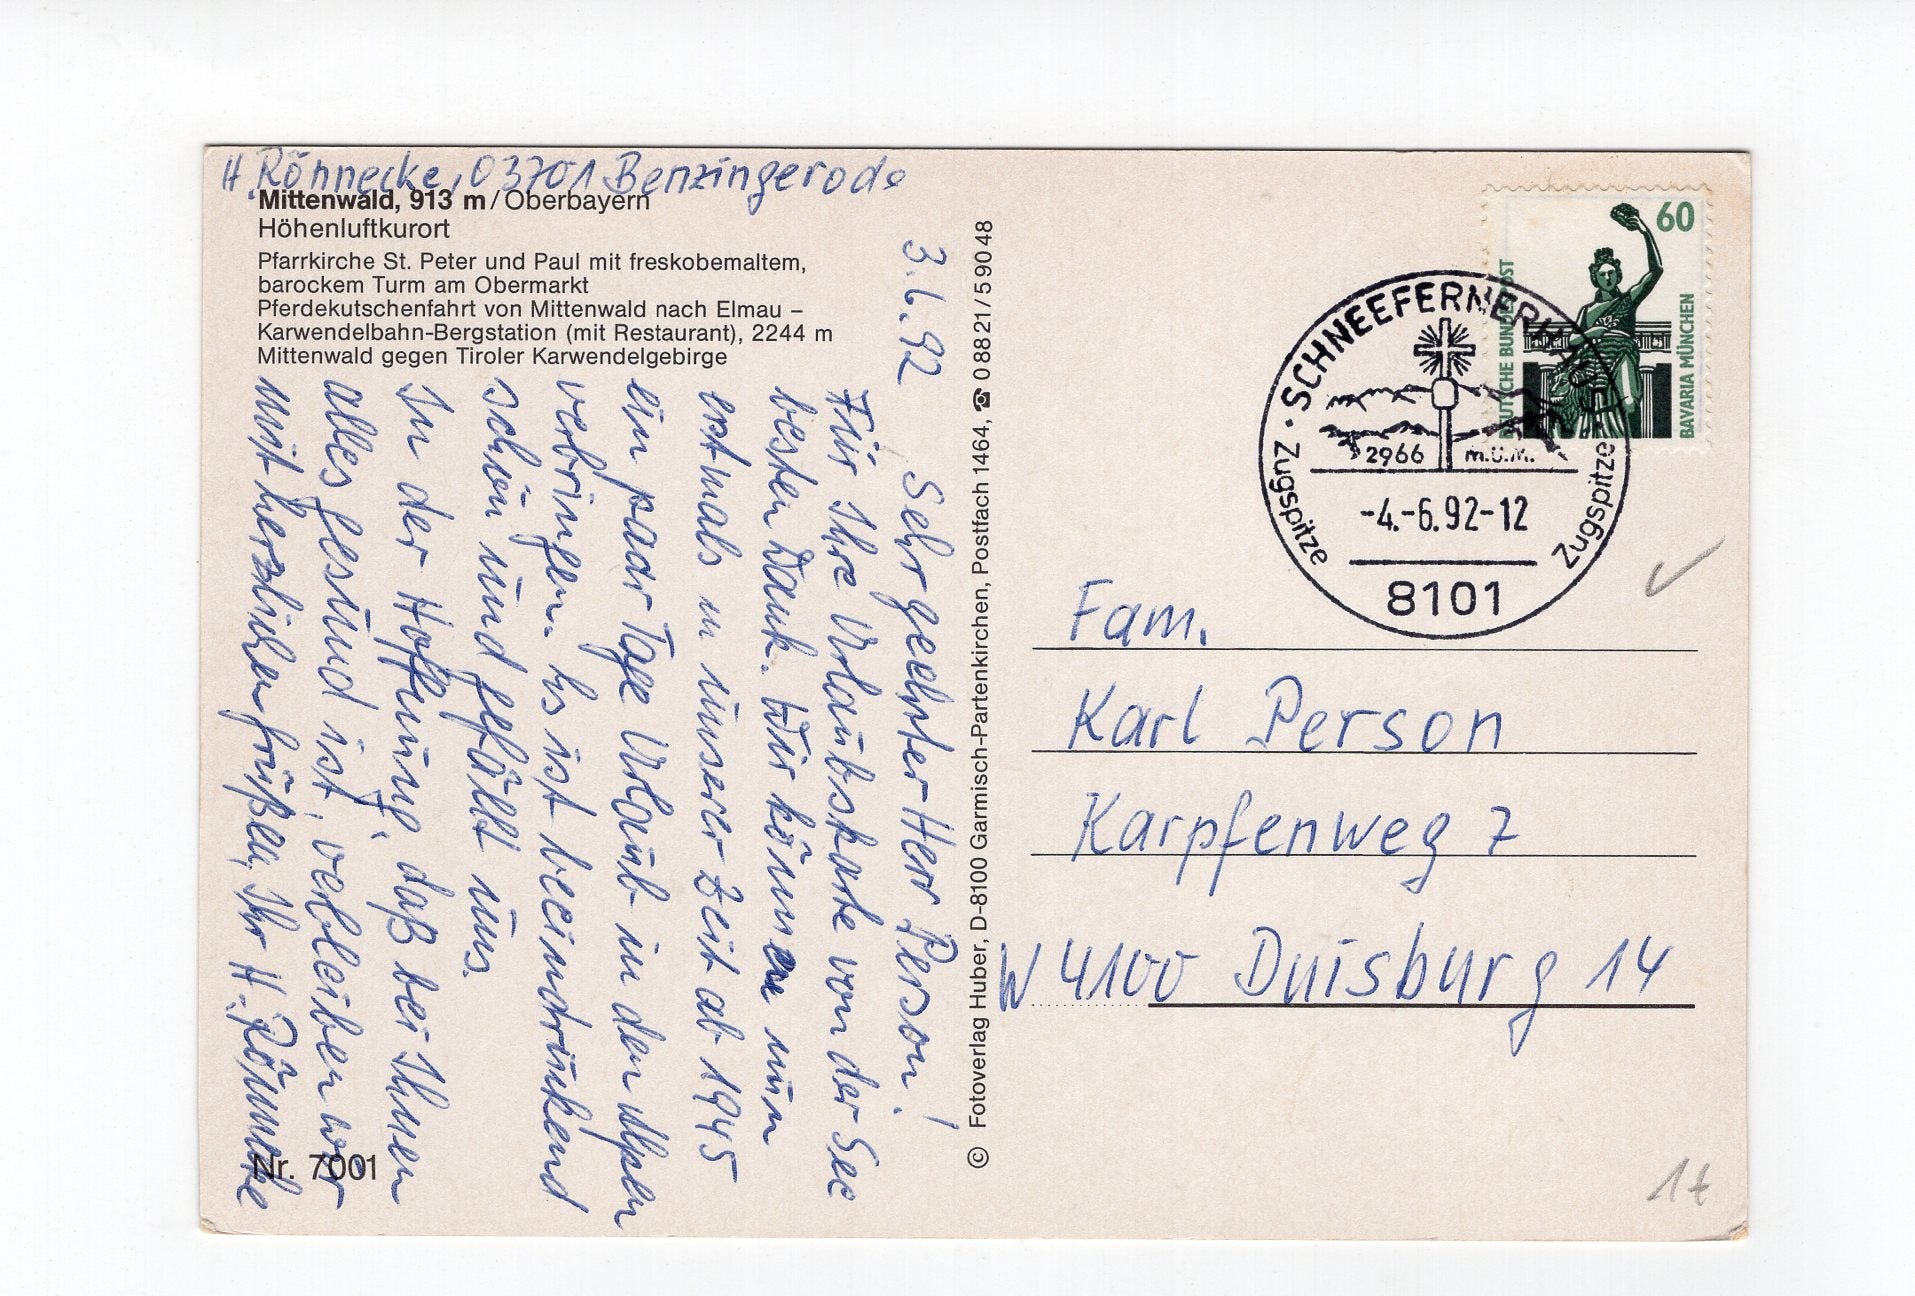 H. Rönnecke, 03701 Benzingerode
Mittenwald, 913 m / Oberbayern
Höhenluftkurort
Pfarrkirche St. Peter und Paul mit freskobemaltem,
barockem Turm am Obermarkt
Pferdekutschenfahrt von Mittenwald nach Elmau –
Karwendelbahn-Bergstation (mit Restaurant), 2244 m
Mittenwald gegen Tiroler Karwendelgebirge
3.6.92
Sehr geehrter Herr Person!
Für Ihre Urlaubskarte von der See
besten Dank. Wir können nun
erstmals in unserer Zeit ab 1945
ein paar Tage Urlaub in den Alpen
verbringen. Es ist beeindrukend
schön und gefällt uns.
In der Hoffnung, daß bei Ihnen
alles gesund ist, verbleiben wir
mit herzlichen Grüßen, Ihr H. Rönnecke
Nr. 7001
© Fotoverlag Huber, D-8100 Garmisch-Partenkirchen, Postfach 1464, ☎ 0 88 21 / 5 90 48
60
DEUTSCHE BUNDESPOST
BAVARIA MÜNCHEN
· SCHNEEFERNERHAUS ·
Zugspitze
Zugspitze
2966 m.ü.M.
-4.-6.92-12
8101
Fam.
Karl Person
Karpfenweg 7
W 4100 Duisburg 14